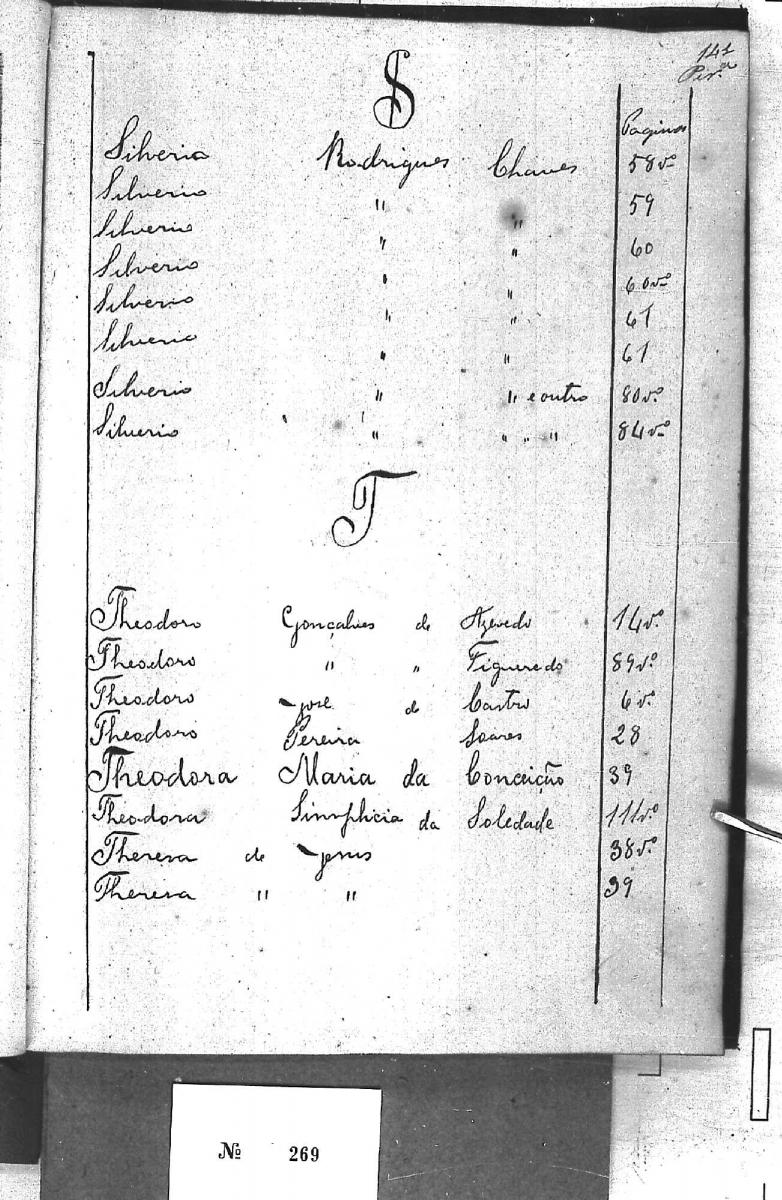 141
S
Paginas
Silverio Rodrigues Chaves 58vº
Silverio " " 59
Silverio " " 60
Silverio " " 60vº
Silverio " " 61
Silverio " " 61
Silverio " " e outro 80vº
Silverio " " " " 84vº
T
Theodoro Gonçalves de Azevedo 14vº
Theodoro " " Figueredo 89vº
Theodoro José de Castro 6vº
Theodoro Pereira Soares 28
Theodora Maria da Conceição 39
Theodora Simphicia da Soledade 111vº
Thereza de Jesus 38vº
Thereza " " 39
Nº 269